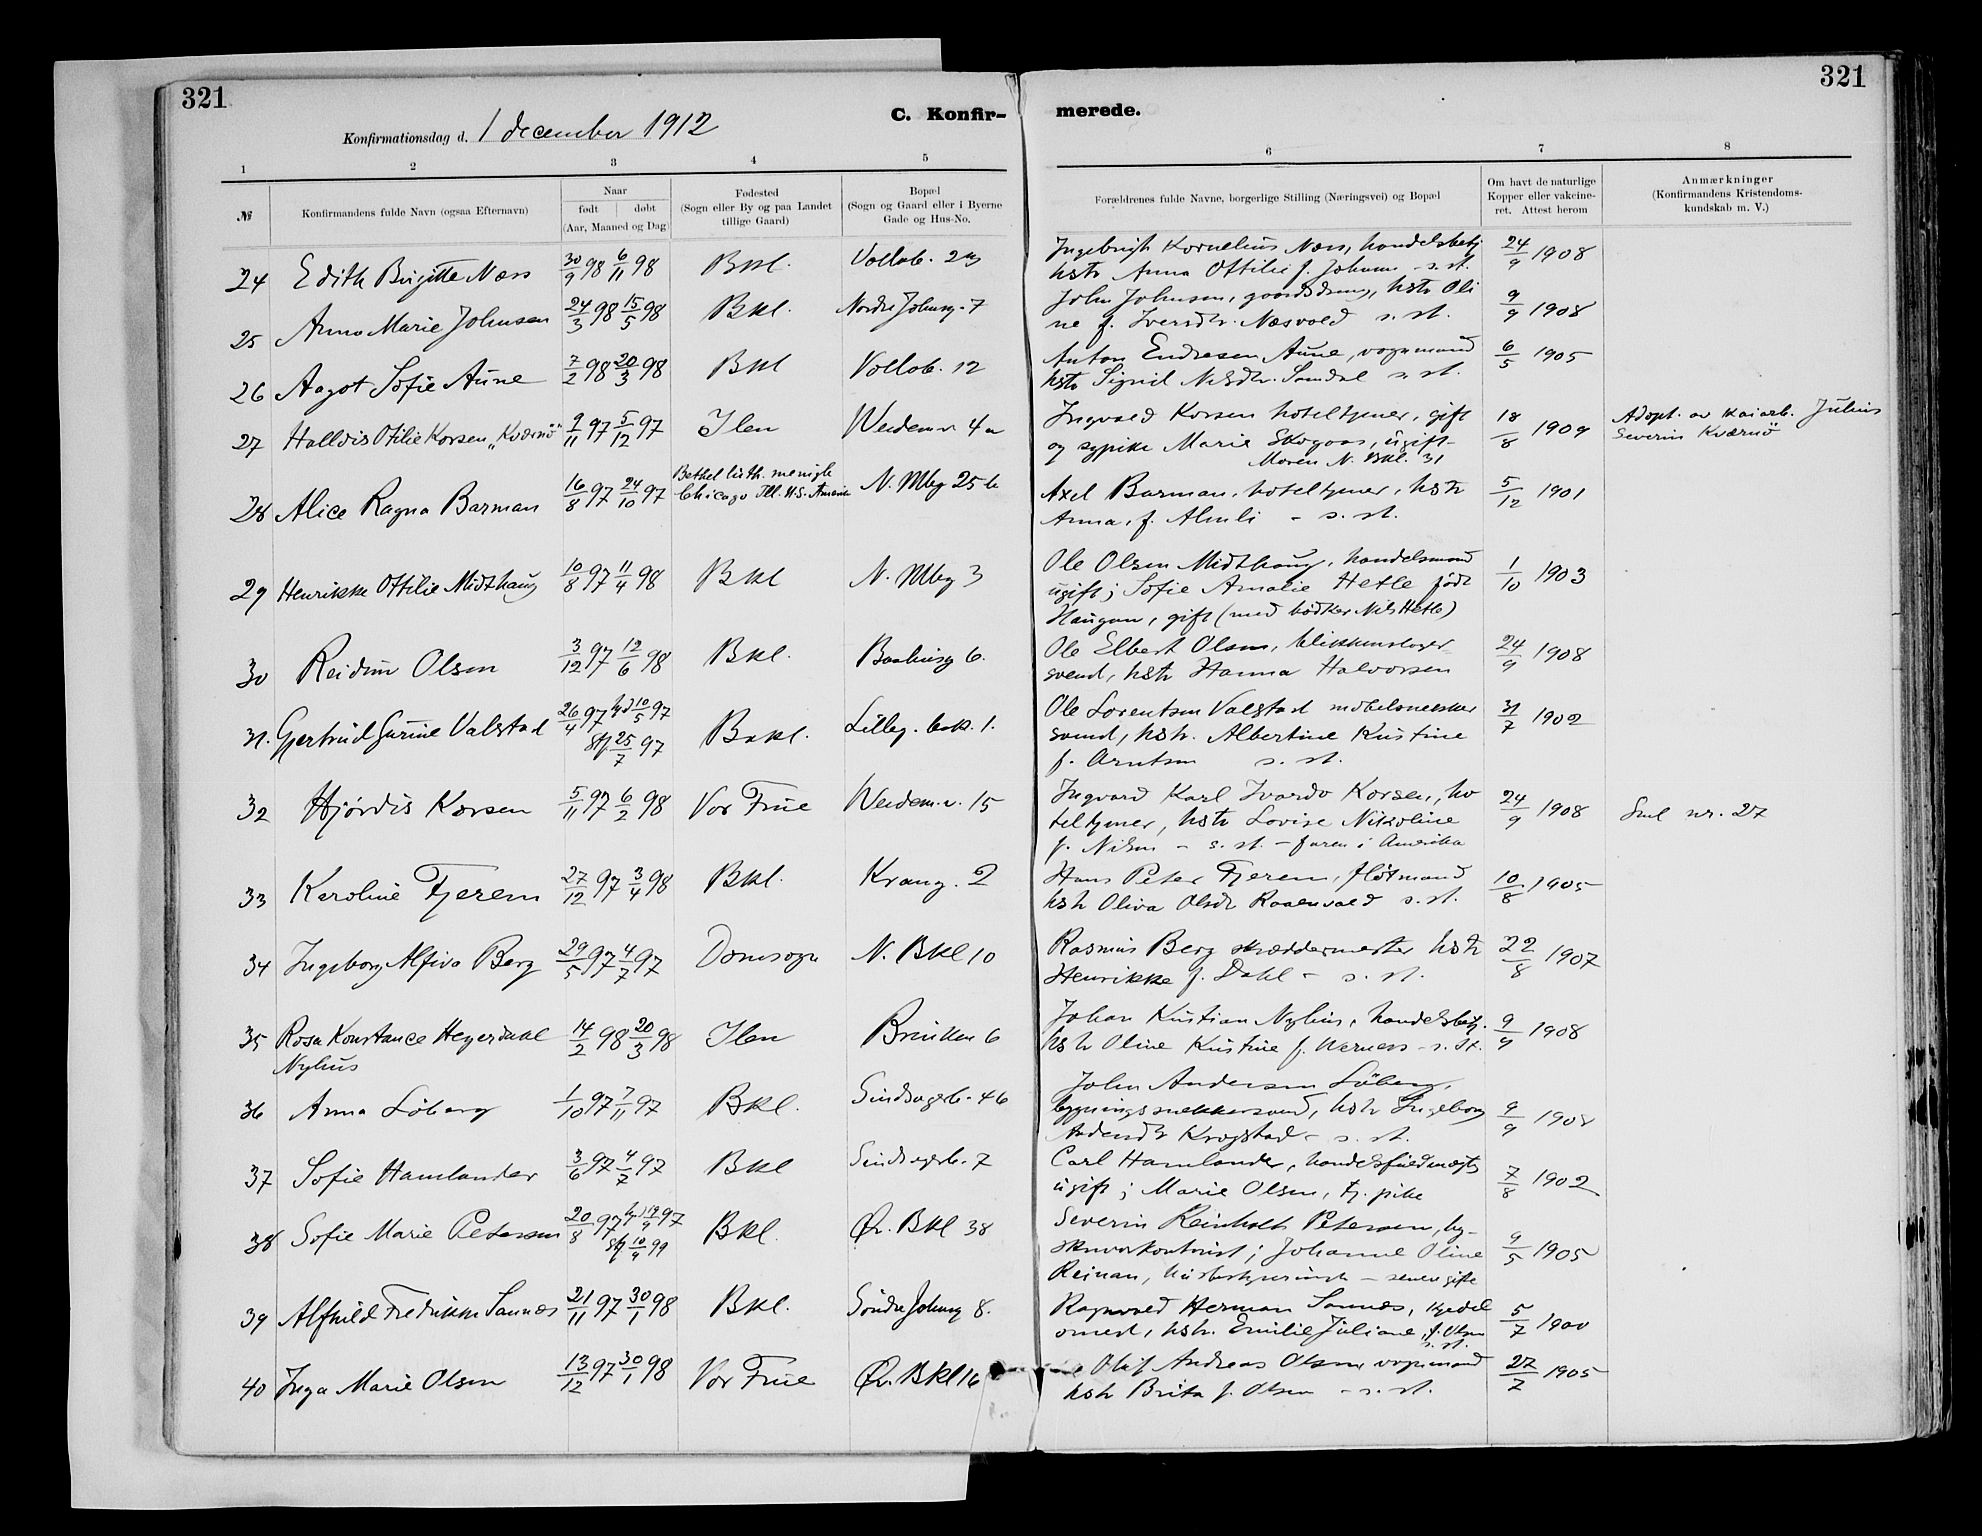 321
321
C. Konfir- merede.
Konfirmationsdag d. 1 december 1912
1 2 3 4 5 6 7 8
№
Konfirmandens fulde Navn (ogsaa Efternavn)
Naar
født døbt
(Aar, Maaned og Dag)
Fødested
(Sogn eller By og paa Landet
tillige Gaard)
Bopæl
(Sogn og Gaard eller i Byerne
Gade og Hus-No.
Forældrenes fulde Navne, borgerlige Stilling (Næringsvei) og Bopæl
Om havt de naturlige
Kopper eller vakcine-
ret. Attest herom
Anmærkninger
(Konfirmandens Kristendoms-
kundskab m. V.)
24 Edith Birgitte Næss 30/9 98 6/11 98 Bkl. Vollab. 24/9 1908
Anna Ottilie f. s. st.
25 Anna Marie Johnsen 24/3 98 15/5 98 Bkl. Nordre 7 John Johnsen, gaardsdreng, hstr Oli
ne f. Iversdtr. Næsvold s. st. 9/9 1908
26 Aagot Sofie Aune 7/2 98 20/3 98 Bkl Vollab. 12 Anton Endresen Aune, vognmand 6/5 1905
hstr Sigrid Nilsdtr. s. st.
27 Halldis Otilie Korsen „Kværnö" 9/11 97 5/12 97 Ilen Weidem.v 4a Ingvald Korsen hoteltjener, gift 18/8 1909 Adopt. av kaiarb. Julius
og sypike Marie Skogaas, ugift- Severin Kværnö
Moren N. Bkl. 31
28 Alice Ragna Barman 16/8 97 24/10 97 Bethel luth. menigh
Chicago Ill. U.S. Amerika N. Mbg 25 b Axel Barman, hoteltjener, hstr 5/12 1901
Anna, f. Almli - s. st.
29 Henrikke Ottilie Midthaug 10/8 97 11/4 98 Bkl N. Mbg 3 Ole Olsen Midthaug, handelsmand
ugift; Sofie Amalie Hetle född 1/10 1903
Haugan, gift (med bödker Nils Hetle)
30 Reidun Olsen 3/12 97 12/6 98 Bkl. 6. Ole Elbert Olsen, blikkenslager
svend, hstr Hanna Halvorsen 24/9 1908
31. Gjertrud Gurine Valstad 26/4 97 hjd 10/5 97
stf 25/7 97 Bakl. Lilleg. bak. 1. Ole Lorentsen Valstad möbelsnekker
svend, hstr. Albertine Kristine 31/7 1902
f. Arntsen s. st.
32 Hjördis Korsen 5/11 97 6/2 98 Vor Frue Weidem.v. 15 Ingvard Karl Korsen, ho
teltjener, hstr Lovise Nikoline 24/9 1908 nr. 27
f. Nilsen - s. st. - faren i Amerika
33 Karoline Fjerem 27/12 97 3/4 98 Bkl. Krang. 2 Hans Peter Fjerem, flötmand 10/8 1905
hstr Oliva Olsdr Raaenvold s. st.
34 Ingeborg Alfiva Berg 29/5 97 4/7 97 Domsogn N. Bkl 10 Rasmus Berg skræddermester hstr 22/8 1907
Henrikke f. Dahl - s. st.
35 Rosa Konstance Heyerdahl
Nyhus 14/2 98 20/3 98 Ilen Brinken 6 Johan Kristian Nyhus, handelsbetj. 9/9 1908
hstr Oline Kristine f. Werness - s. st.
36 Anna Löberg 1/10 97 7/11 97 Bkl. 46 John Andersen Löberg,
bygningssnekkersvend, hstr Ingeborg 9/9 1908
Krogstad - s. st.
37 Sofie Hamlander 3/6 97 4/7 97 Bkl 7 Carl Hamlander, handelsfuldmægtig
ugift; Marie Olsen, tj. pike 7/8 1902
38 Sofie Marie Petersen 20/8 97 hjd 97
stf 10/9 99 Bkl. Öv. Bkl 38 Severin Reinholt Petersen, by-
skriverkontorist; Johanne Oline 9/5 1905
Reinan, - senere gifte
39 Alfhild Fredrikke Sannæs 21/11 97 30/1 98 Bkl. Söndre 8. Ragnvald Herman Sannæs, kjedel
smed, hstr. Emilie Juliane, f. Olsen 5/7 1900
s. st.
40 Inga Marie Olsen 13/12 97 30/1 98 Vor Frue Öv. Bkl 16 Oluf Andreas Olsen vognmand 27/7 1905
hstr Brita f. Olsen - s. st.